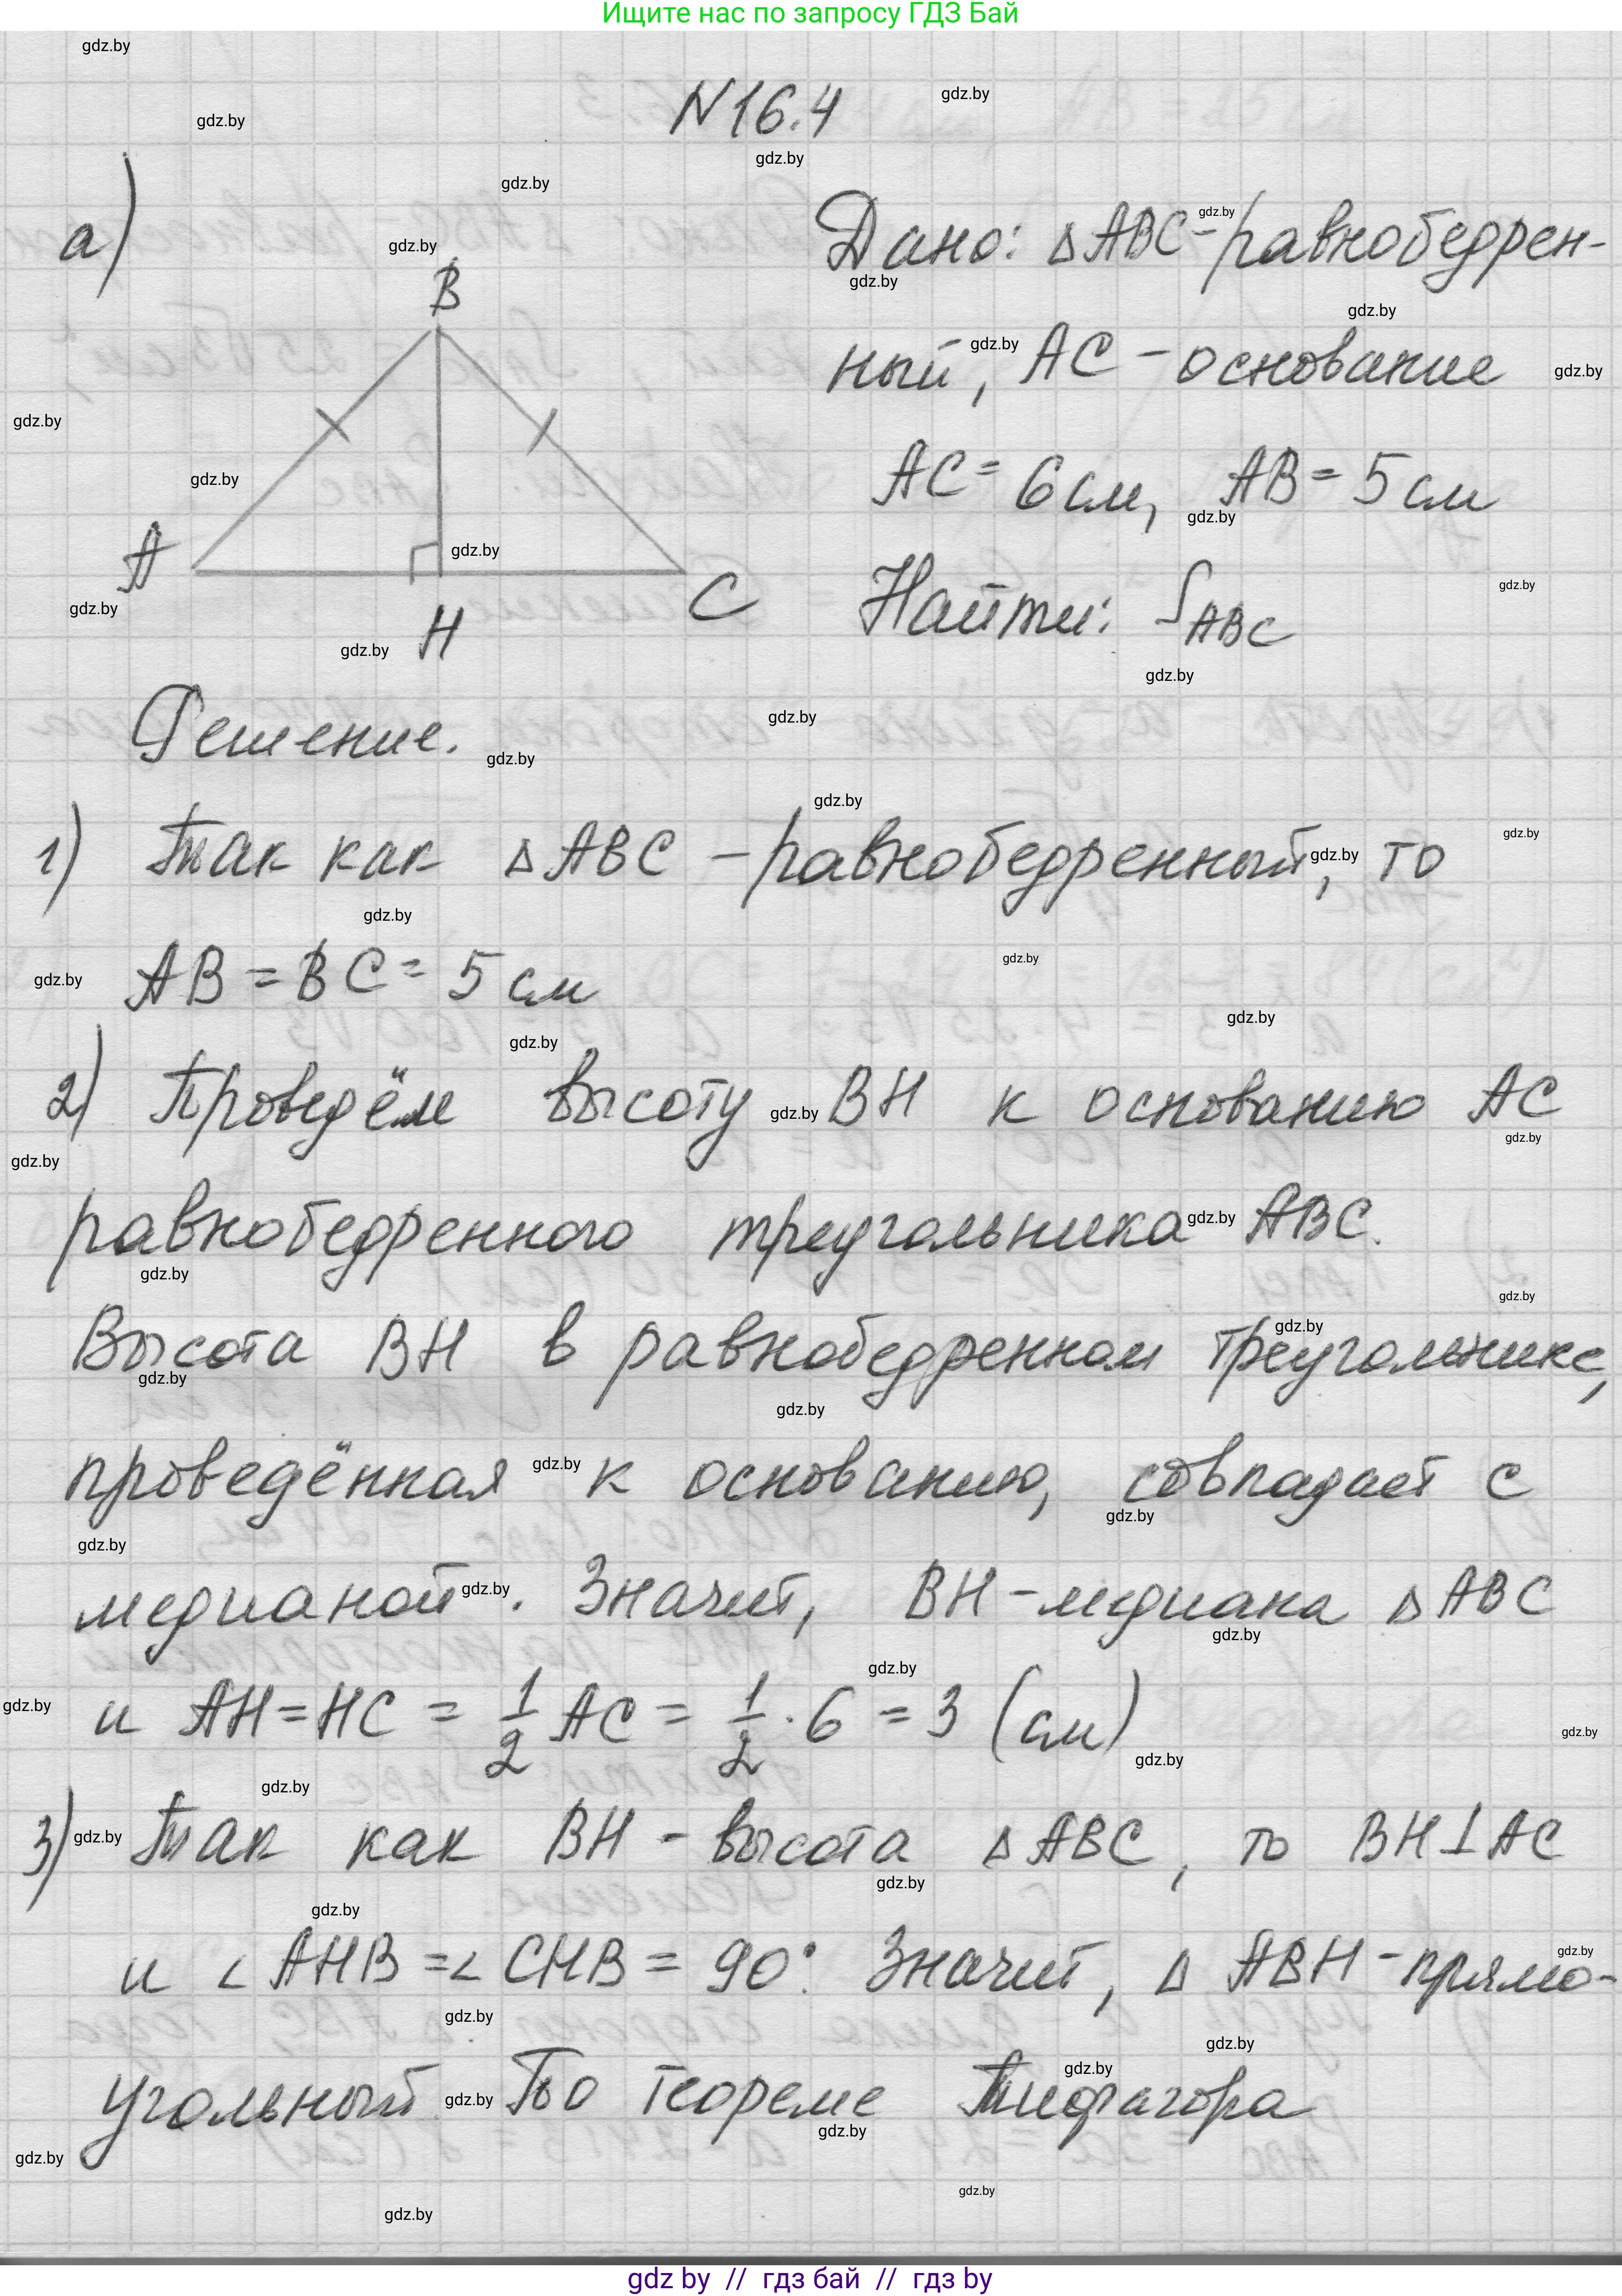 Ищите нас по запросу ГДЗ Бай
N16.4
а)
Дано: △ABC-равнобедрен-
ный, AC - основание
AC = 6 см, AB = 5 см
Найти: S ABC
B
A
H
C
Решение.
1) Так как △ABC - равнобедренный, то
AB = BC = 5 см
2) Проведём высоту BH к основанию AC
равнобедренного треугольника ABC.
Высота BH в равнобедренном треугольнике,
проведённая к основанию, совпадает с
медианой. Значит, BH - медиана △ABC
и AH = HC = 1/2 AC = 1/2 · 6 = 3 (см)
3) Так как BH - высота △ABC, то BH⊥AC
и ∠AHB = ∠CHB = 90°. Значит, △ABH - прямо-
угольный. По теореме Пифагора
gdz by // гдз бай // гдз by